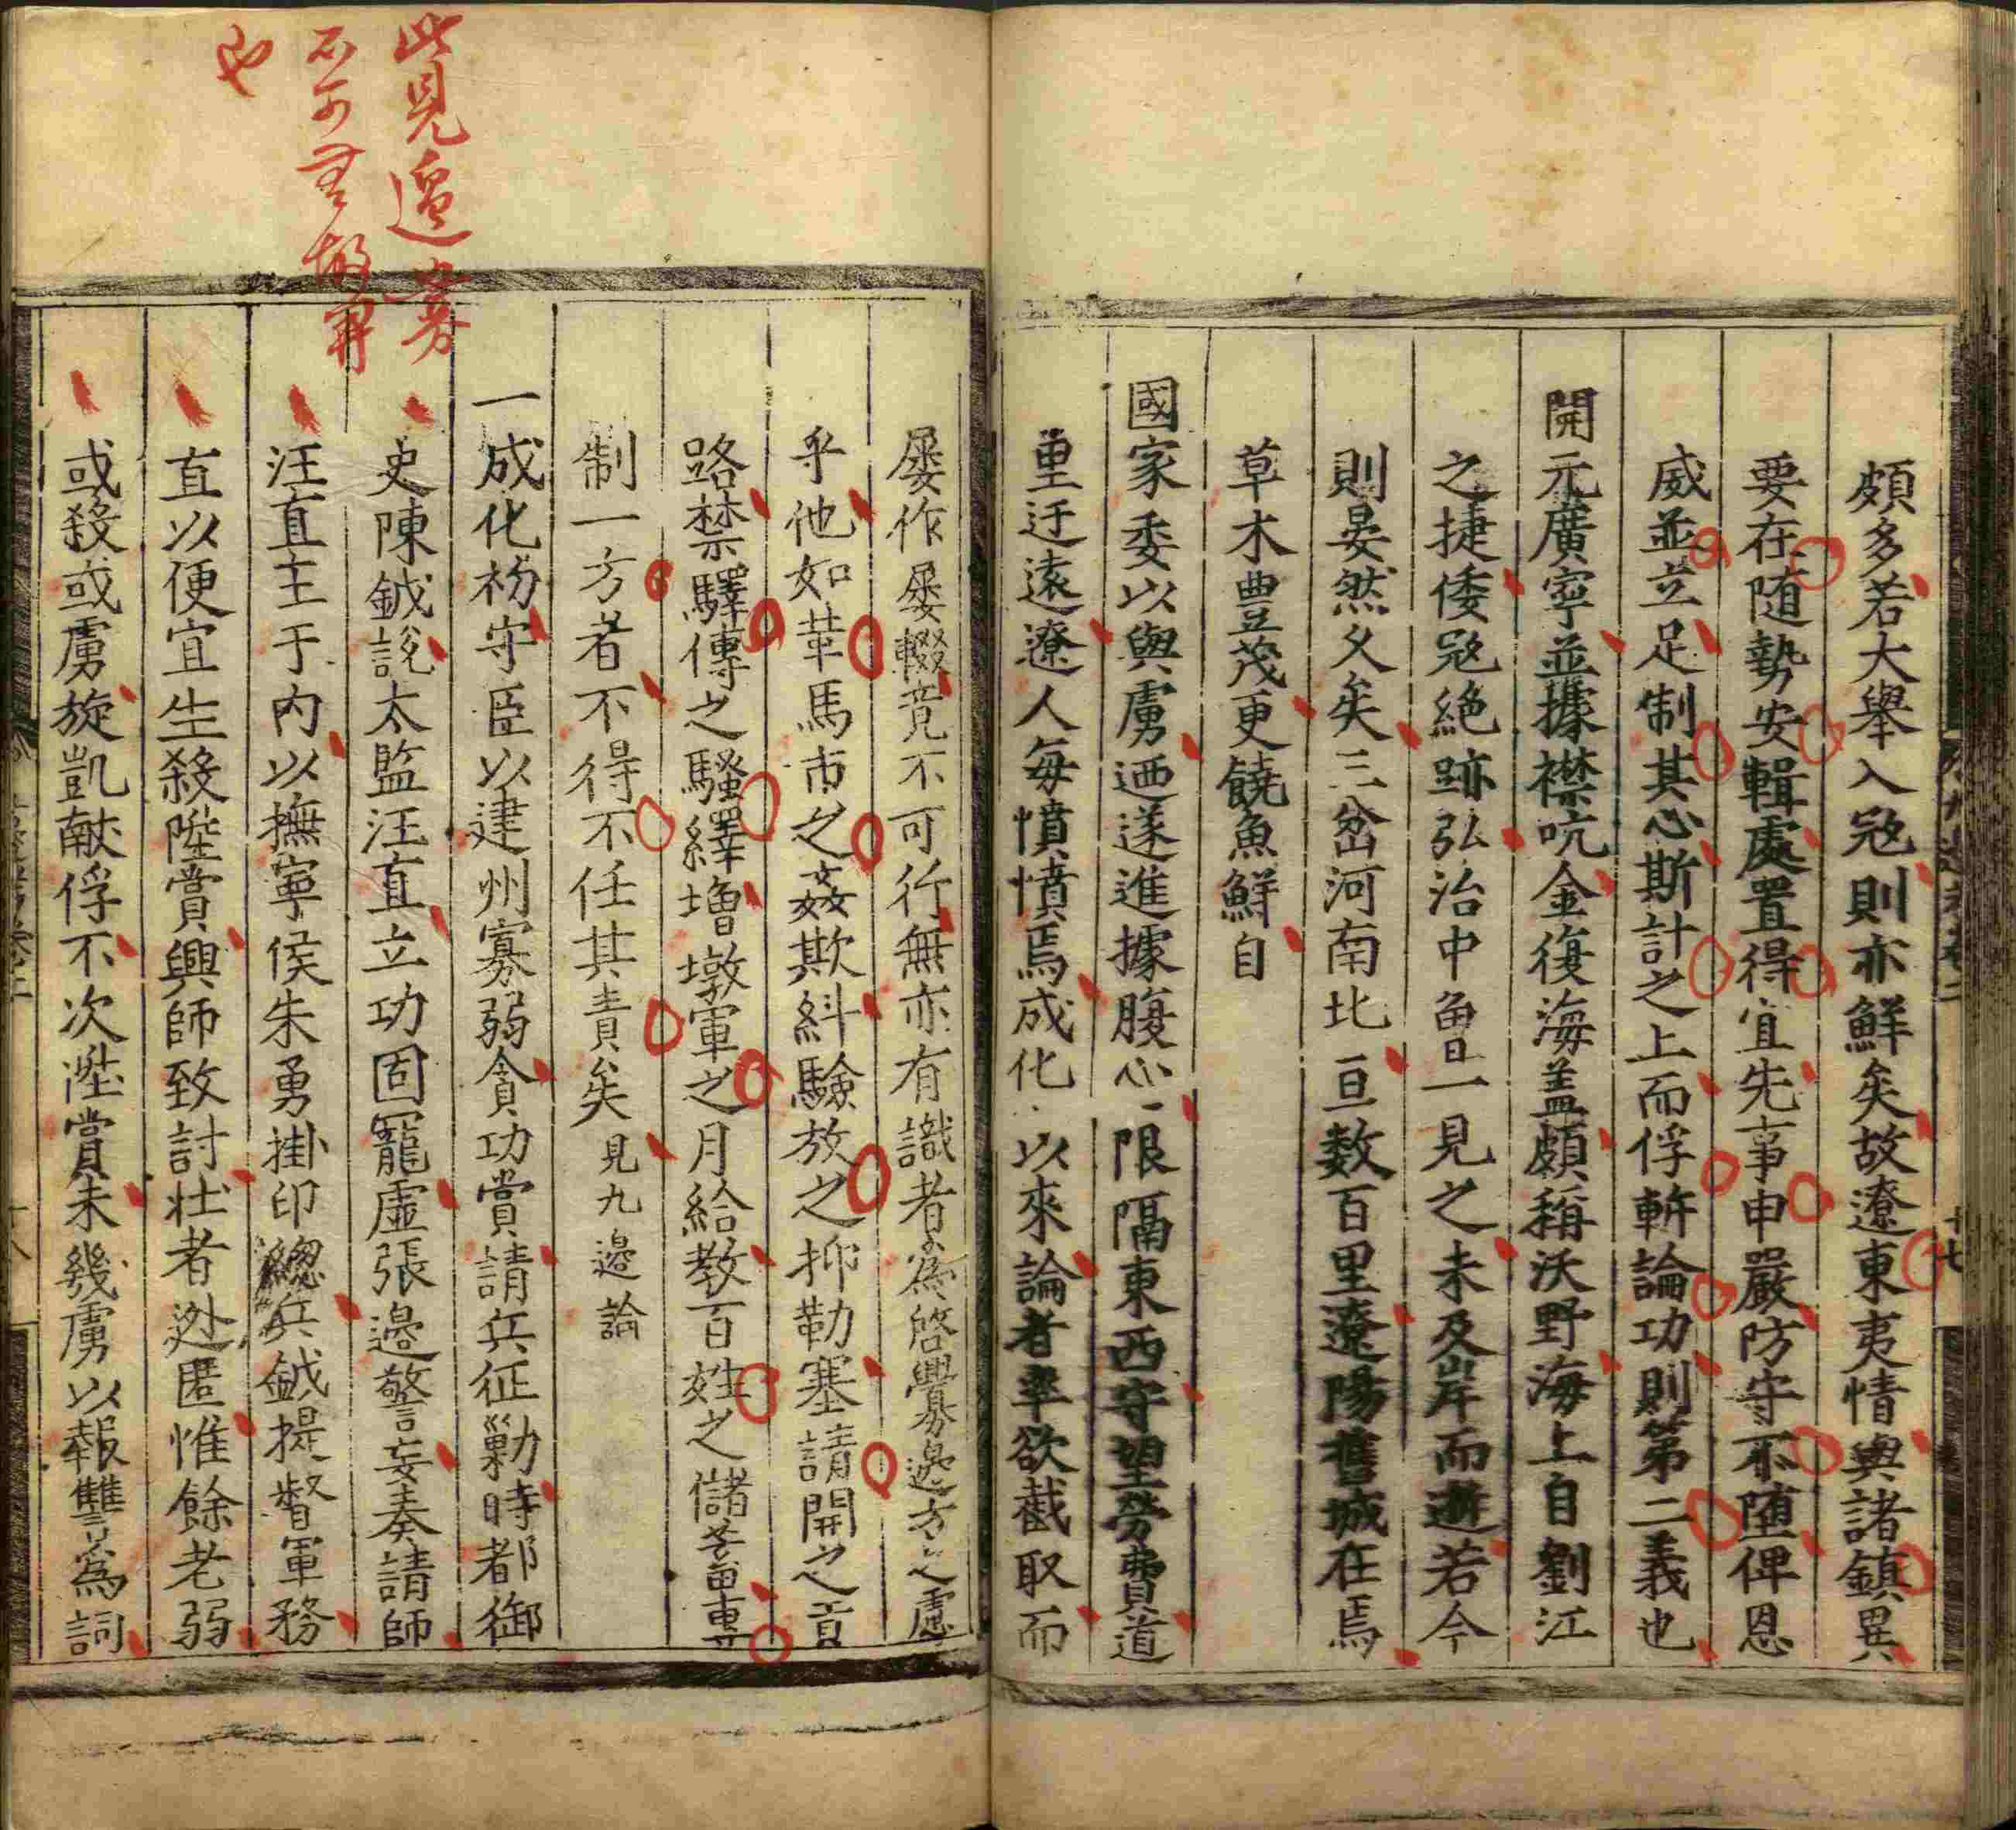 頗多若大舉入宼則亦鮮矣故遼東夷情與諸鎮異
要在随勢安輯處置得宜先事申嚴防守不堕俾恩
威並立足制其心斯計之上而俘斬論功則第二義也
開元廣寧並據襟吭金復海盖頗稱沃野海上自劉江
之捷倭宼絶跡弘治中魯一見之未及岸而逝若今
則晏然久矣三岔河南北亘数百里遼陽舊城在焉
草木豊茂更饒魚鮮自
國家委以與虜迺遂進據腹心限隔東西守望勞費道
里迂遠遼人每憤憤焉成化以來論者率欲截取而
屡作屡輟竟不可行無亦有識者爲啓釁邊方之慮
乎他如革馬市之姦欺糾驗放之抑勒塞請開之貢
路禁驛傳之騷繹增墩軍之月給教百姓之儲蓄專
制一方者不得不任其責矣見九邉論
一成化初守臣以建州寡弱貪功賞請兵征勦時都御
史陳鉞說太監汪直立功固寵虛張邉警妄奏請師
汪直主于內以撫寧侯朱勇掛印總兵鉞提督軍務
直以便宜生殺陞賞興師致討壮者逊匿惟餘老弱
或殺或虜旋凱献俘不次陞賞未幾虜以報讐爲詞
此見邉釁
不可無故開
也